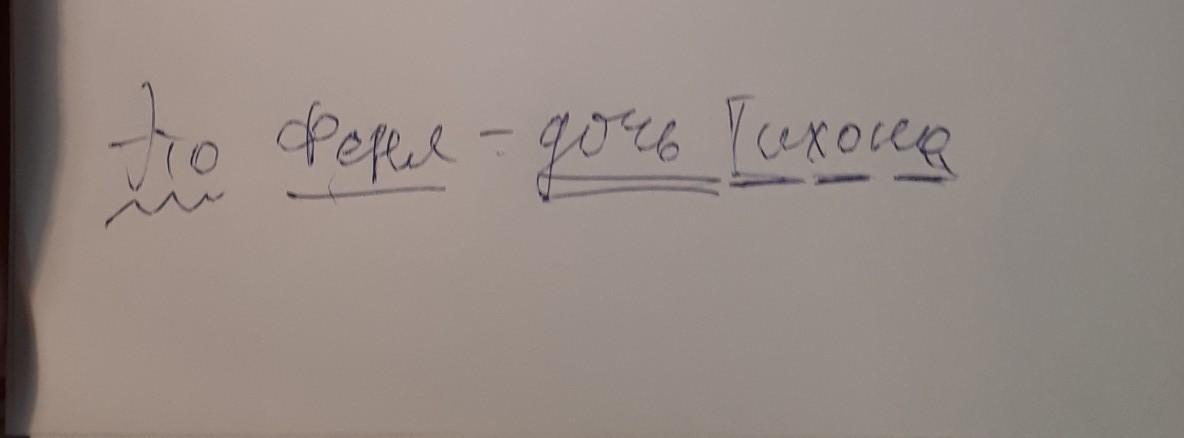 Это Федя - дочь Тихона